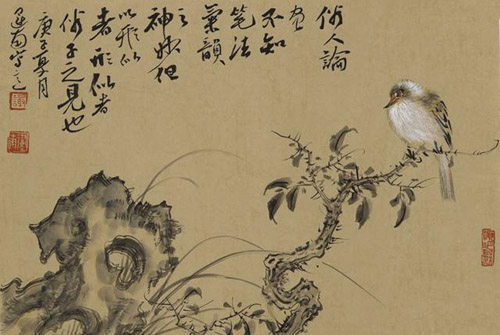 俗人論
画不知笔法
氣韻
之神妙但
以形似
者形似者
俗子之見也
庚子夏月